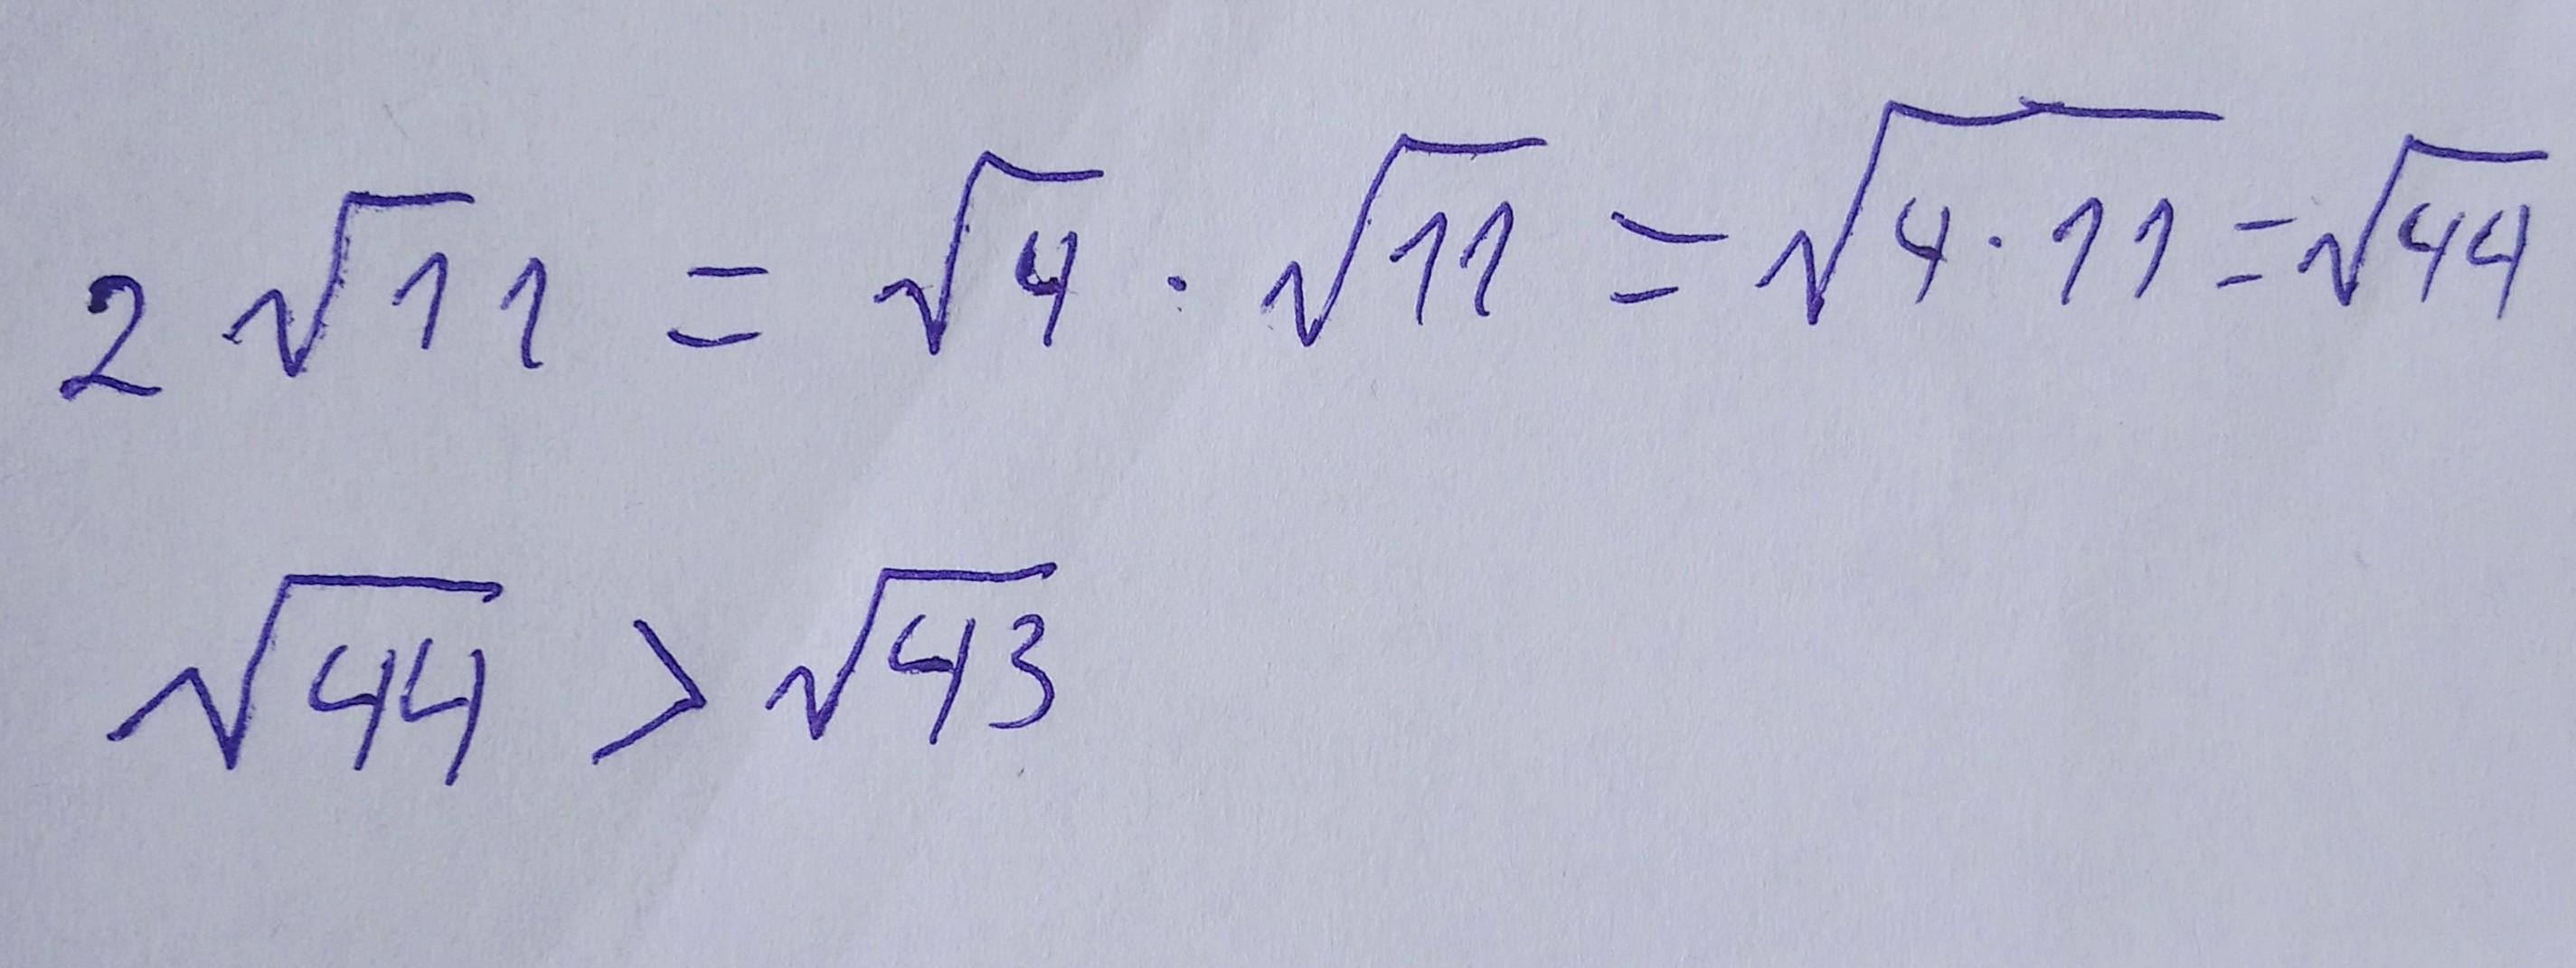 2√11 = √4 · √11 = √4·11 = √44
√44 > √43